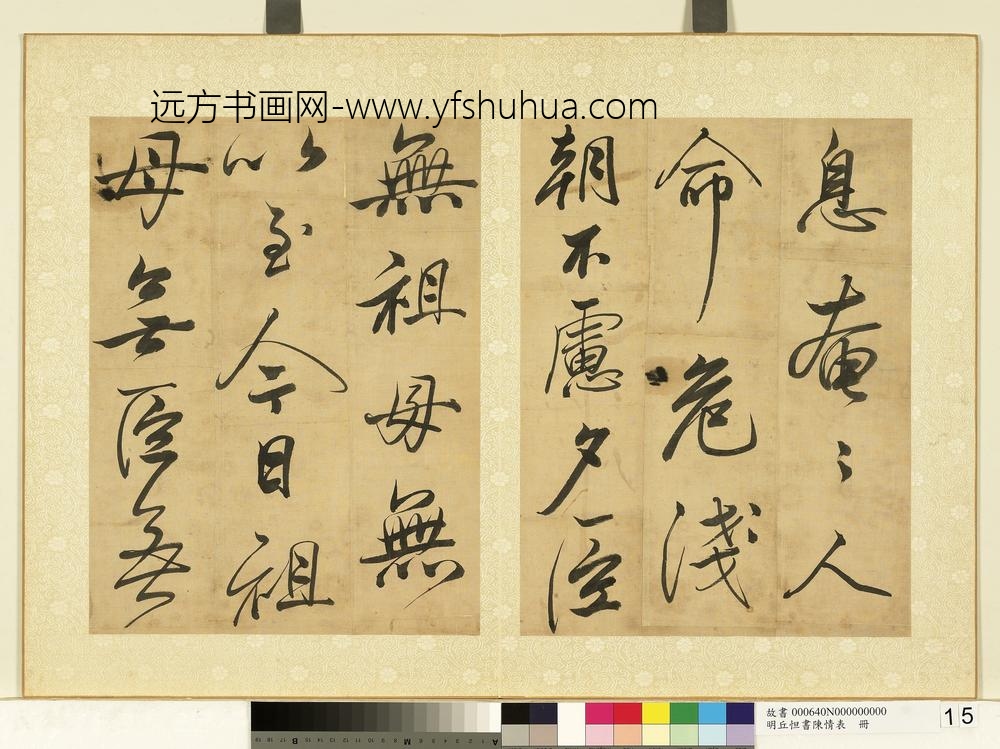 远方书画网-www.yfshuhua.com
息奄〻人
命危淺
朝不慮夕臣
無祖母無
以至今日祖
母無臣無
故書 000640N000000000
明丘怛書陳情表 冊
15